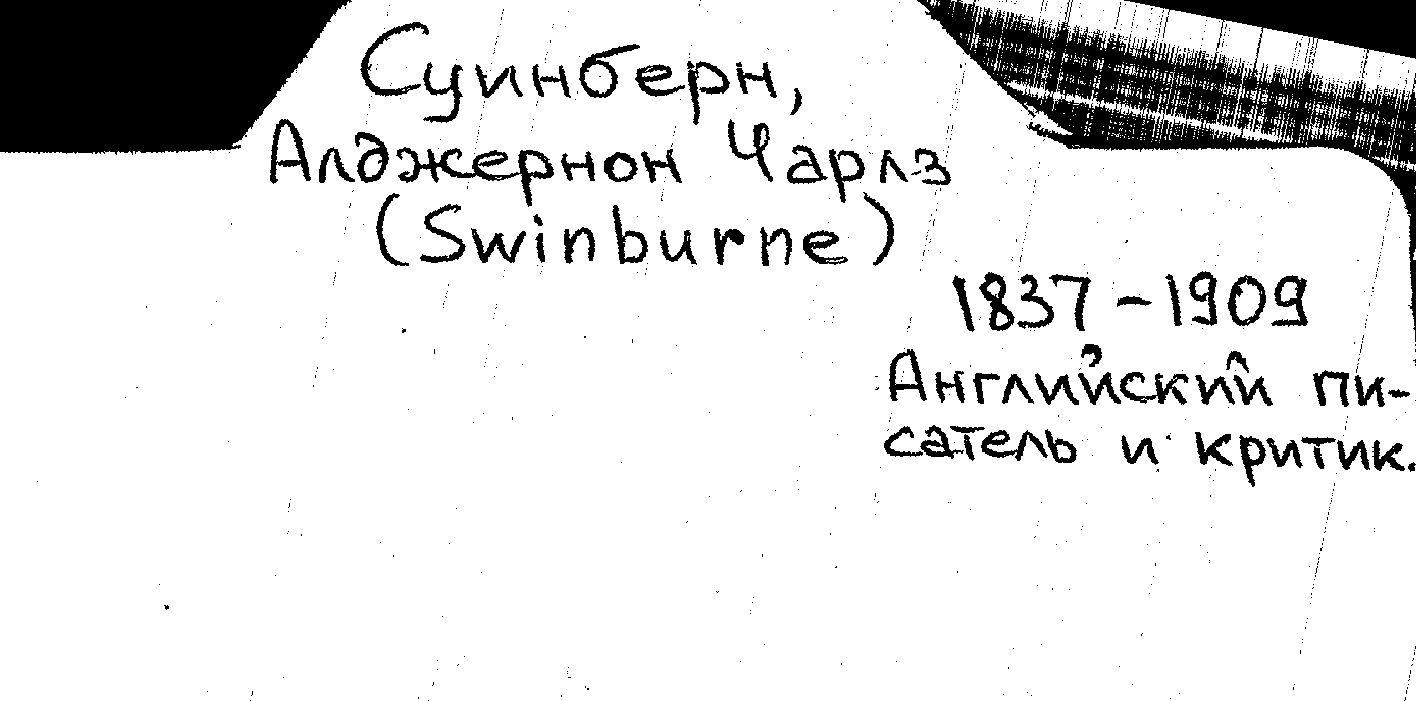 Суинберн,
Алджернон Чарлз
(Swinburne)
1837-1909
Английский пи-
сатель и критик.